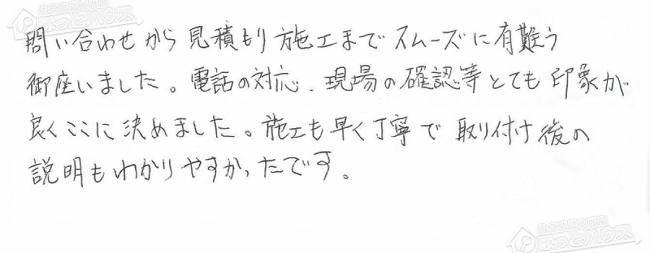 問い合わせから見積もり施工までスムーズに有難う
御座いました。電話の対応、現場の確認等とても印象が
良くここに決めました。施工も早く丁寧で取り付け後の
説明もわかりやすかったです。